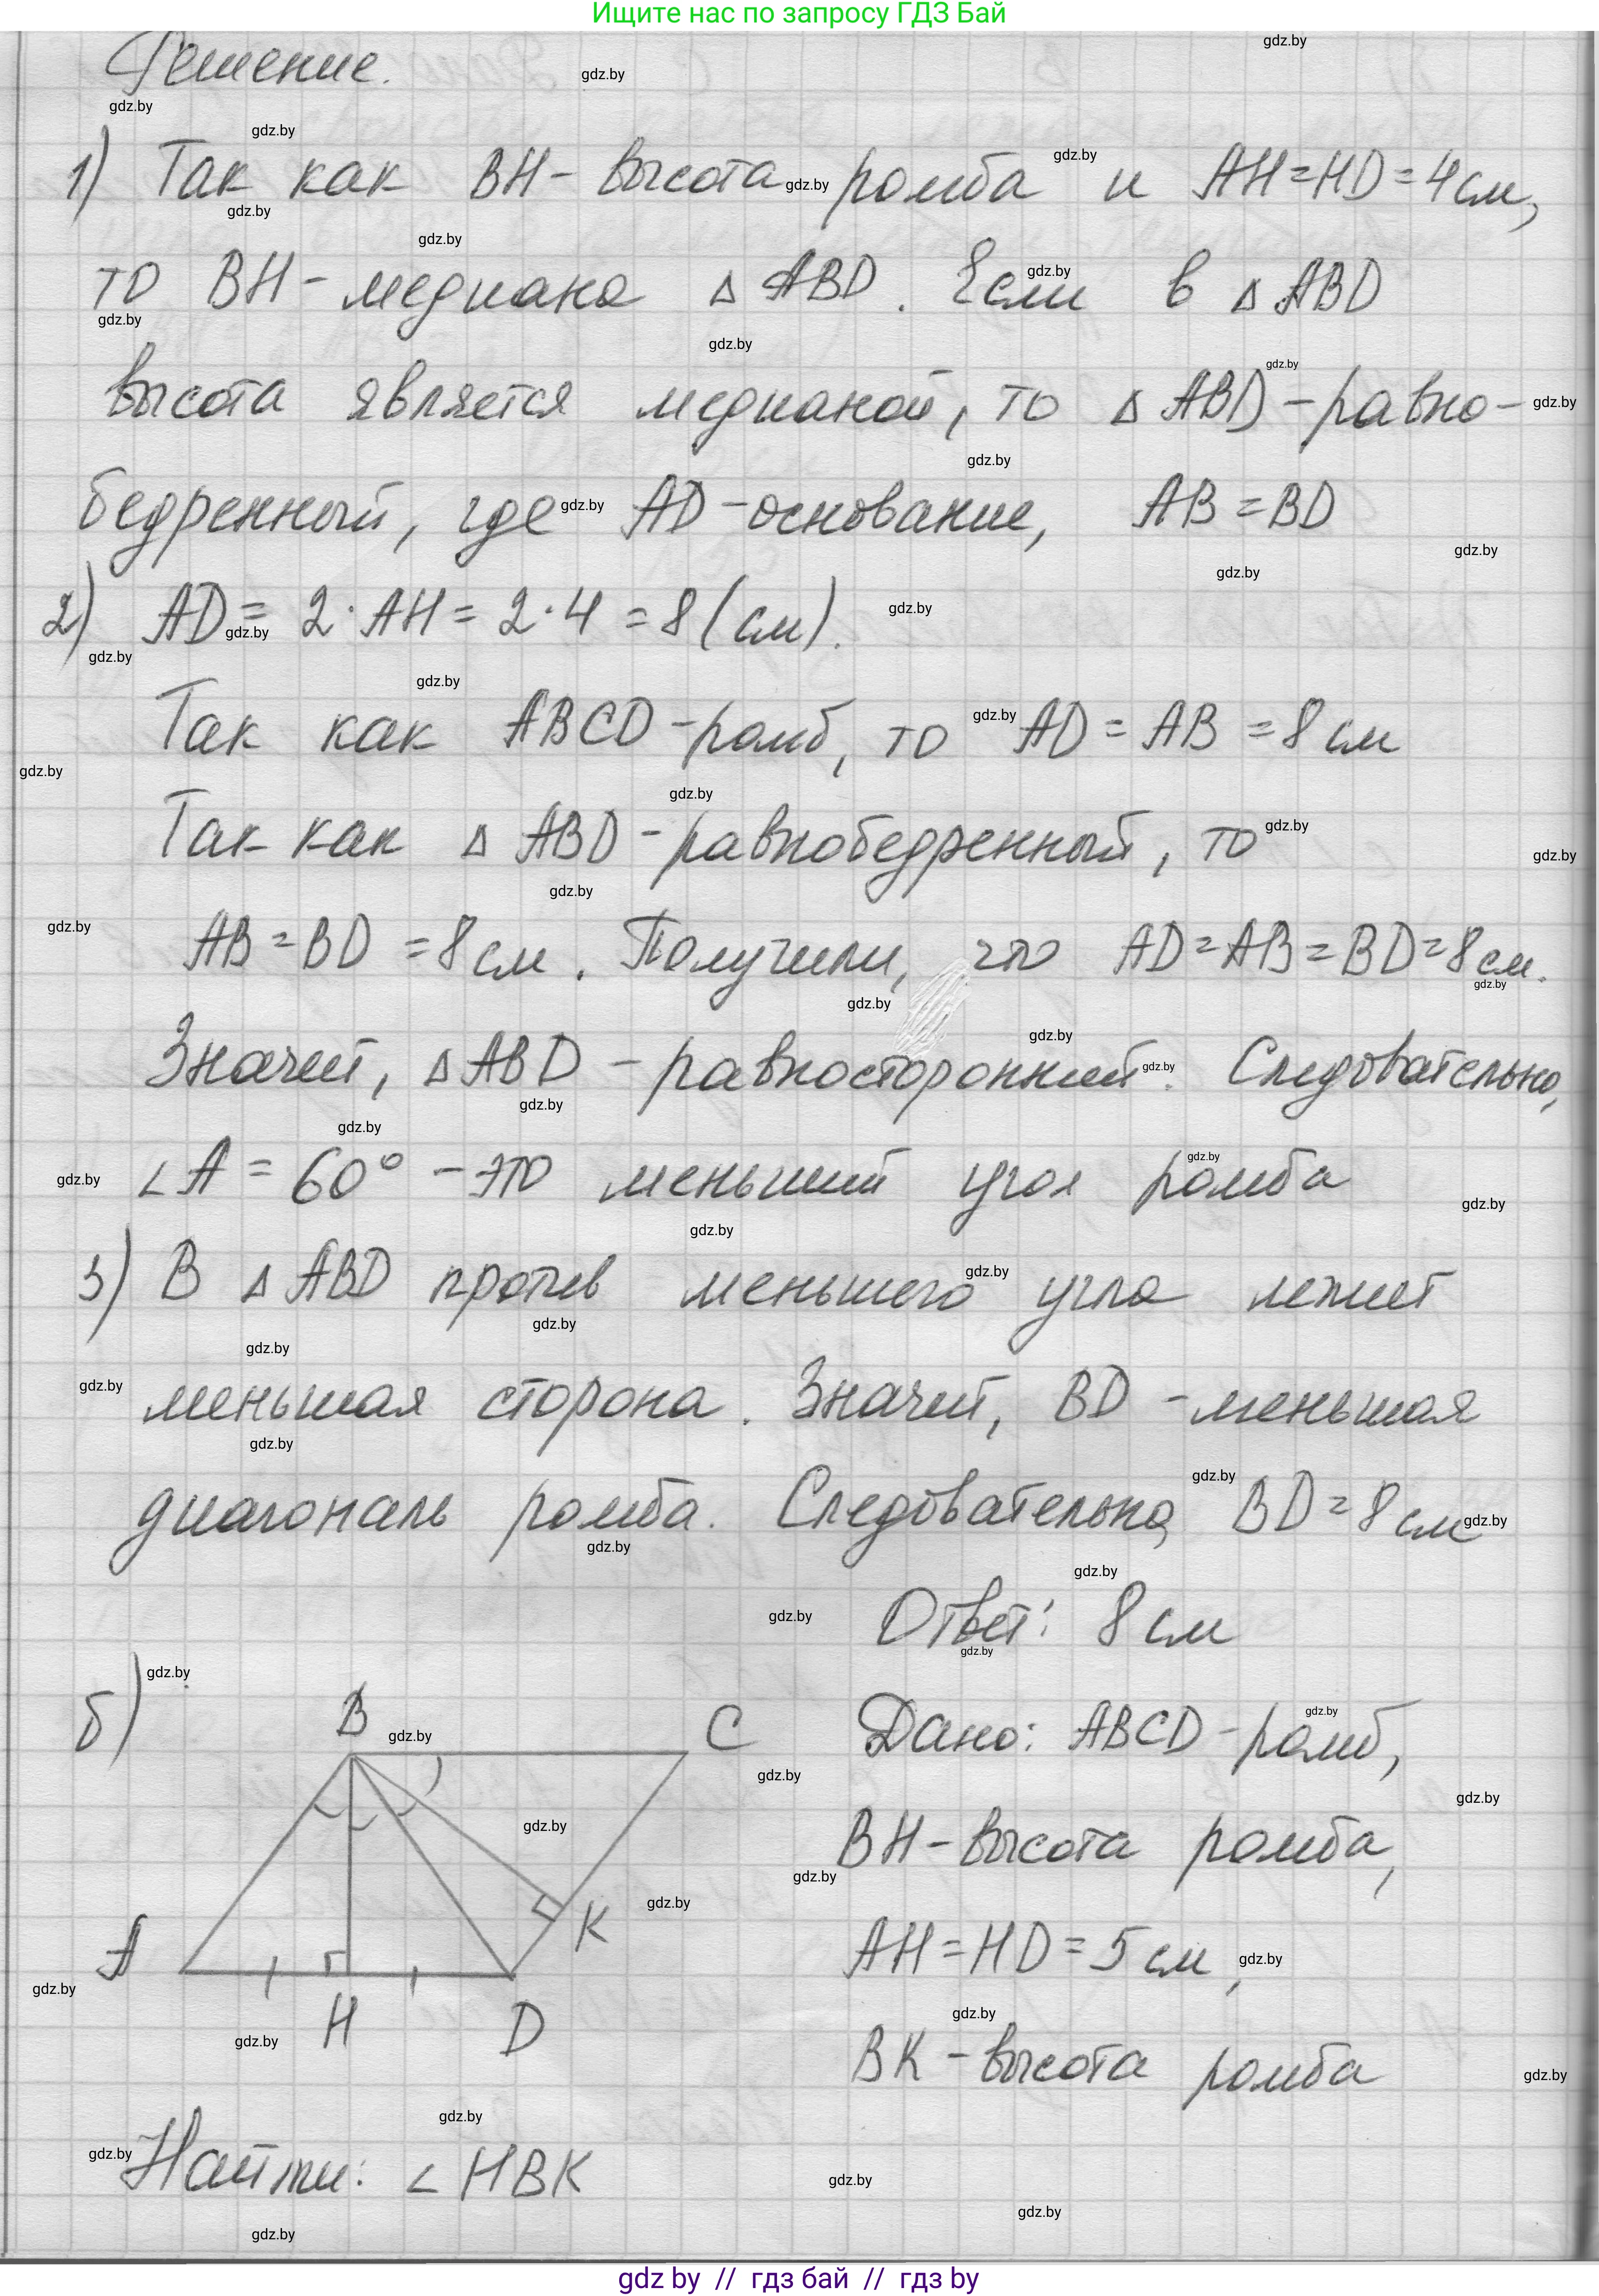 Ищите нас по запросу ГДЗ Бай
Решение.
1) Так как BH - высота ромба и AH = HD = 4 см,
то BH - медиана △ ABD. Если в △ ABD
высота является медианой, то △ ABD - равно-
бедренный, где AD - основание, AB = BD
2) AD = 2 · AH = 2 · 4 = 8 (см).
Так как ABCD - ромб, то AD = AB = 8 см
Так как △ ABD - равнобедренный, то
AB = BD = 8 см. Получили, что AD = AB = BD = 8 см.
Значит, △ ABD - равносторонний. Следовательно,
∠ A = 60° - это меньший угол ромба
3) В △ ABD против меньшего угла лежит
меньшая сторона. Значит, BD - меньшая
диагональ ромба. Следовательно, BD = 8 см
Ответ: 8 см
б)
B
C
K
A
H
D
Дано: ABCD - ромб,
BH - высота ромба,
AH = HD = 5 см,
BK - высота ромба
Найти: ∠ HBK
gdz by // гдз бай // гдз by